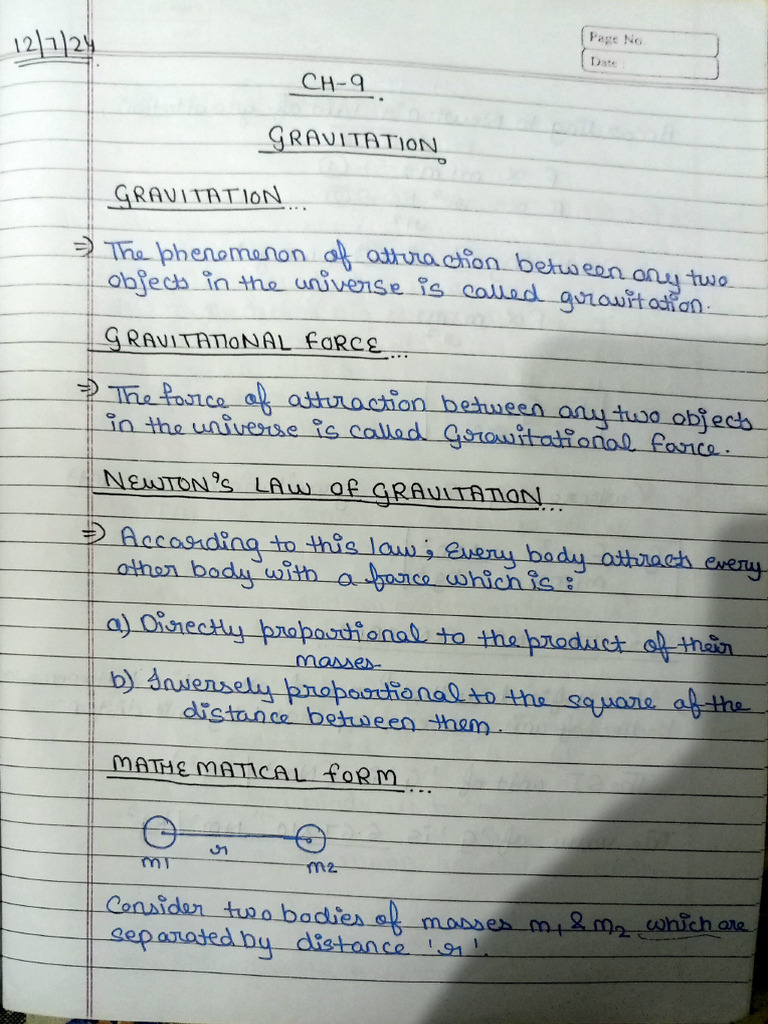 12/7/24
Page No.
Date:
CH-9.
GRAVITATION
GRAVITATION...
⇒ The phenomenon of attraction between any two
objects in the universe is called gravitation.
GRAVITATIONAL FORCE...
⇒ The force of attraction between any two objects
in the universe is called Gravitational force.
NEWTON'S LAW OF GRAVITATION...
⇒ According to this law; Every body attract every
other body with a force which is:
a) Directly proportional to the product of their
masses
b) Inversely proportional to the square of the
distance between them.
MATHEMATICAL FORM...
r
m1 m2
Consider two bodies of masses m₁ & m₂ which are
separated by distance 'r'.